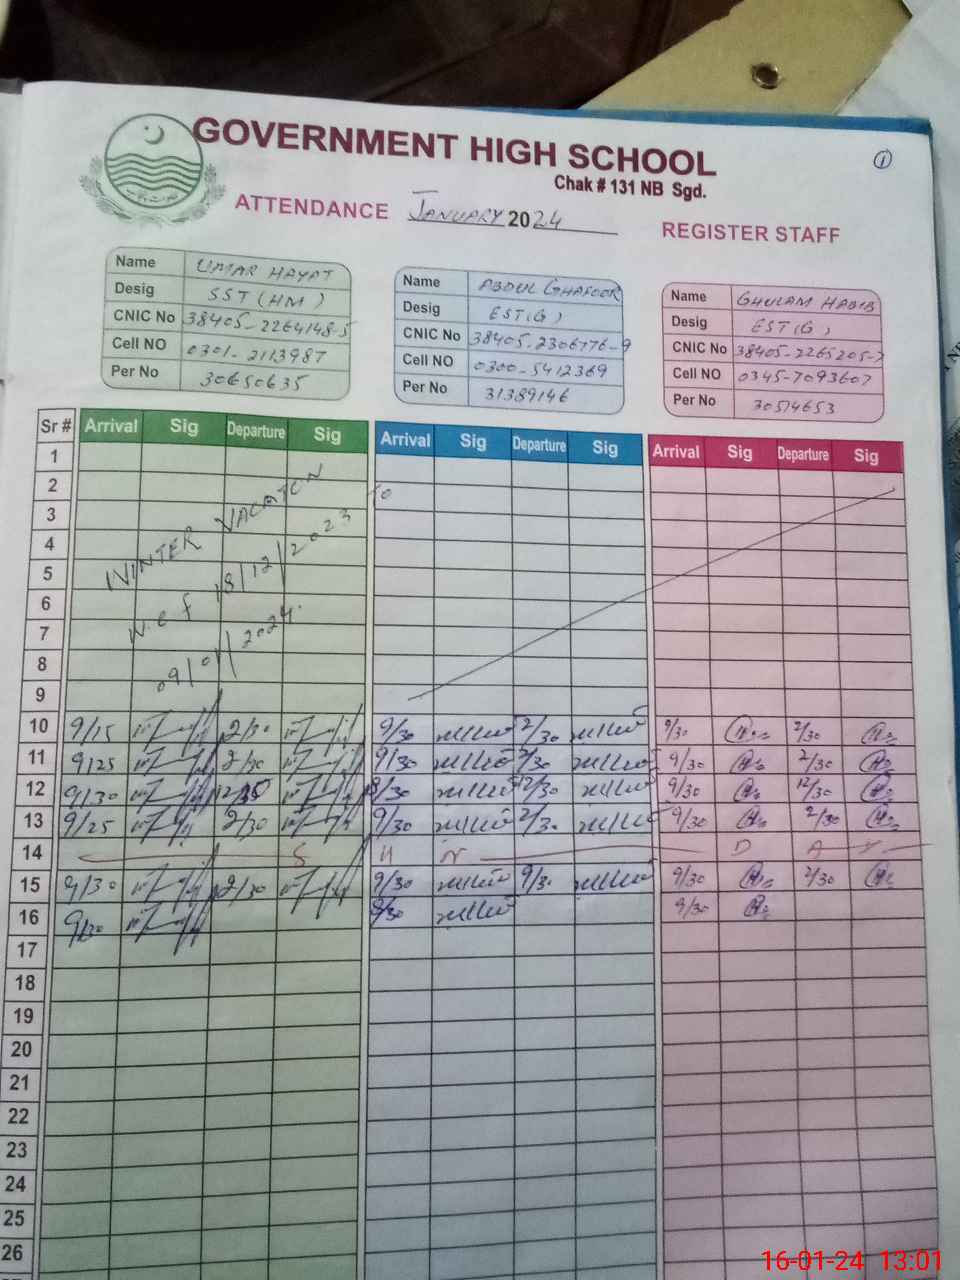 GOVERNMENT HIGH SCHOOL
Chak # 131 NB Sgd.
1
ATTENDANCE JANUARY 2024 REGISTER STAFF
Name UMAR HAYAT
Desig SST (HM)
CNIC No 38405-2264148-5
Cell NO 0301-2113987
Per No 30650635
Name ABDUL GHAFOOR
Desig EST(G)
CNIC No 38405-2306776-9
Cell NO 0300-5412369
Per No 31389146
Name GHULAM HABIB
Desig EST(G)
CNIC No 38405-2265205-7
Cell NO 0345-7093607
Per No 30514653
Sr # Arrival Sig Departure Sig Arrival Sig Departure Sig Arrival Sig Departure Sig
1
2
3
4
5
6
7
8
9
WINTER VACATON
w.e.f 18/12/2023 To
09/01/2024
10 9/15 2/30 9/30 2/30 9/30 2/30
11 9/25 2/30 9/30 2/30 9/30 2/30
12 9/30 9/30 12/30 9/30 12/30
13 9/25 2/30 9/30 2/30 9/30 2/30
14 S U N D A Y
15 9/30 2/30 9/30 9/30 9/30 2/30
16 9/30 9/30 9/30
17
18
19
20
21
22
23
24
25
26
16-01-24 13:01